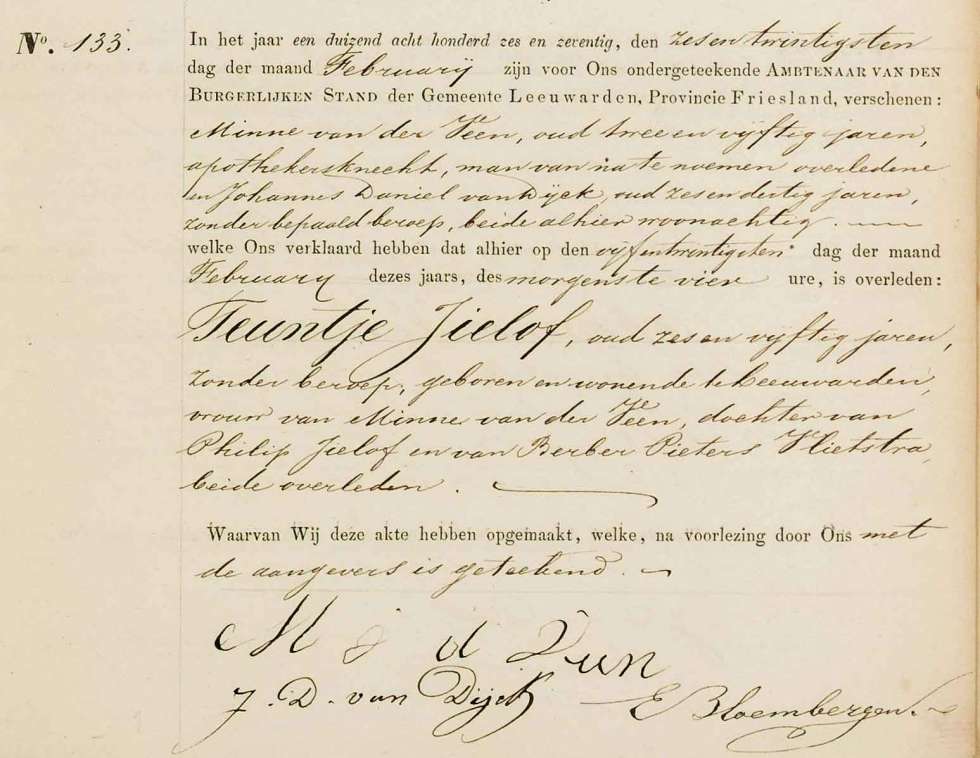 No. 133.
In het jaar een duizend acht honderd zes en zeventig, den zesentwintigsten
dag der maand Februarij zijn voor Ons ondergeteekende AMBTENAAR VAN DEN
BURGERLIJKEN STAND der Gemeente Leeuwarden, Provincie Friesland, verschenen:
Minne van der Veen, oud twee en vijftig jaren,
apothekersknecht, man van na te noemen overledene
en Johannes Daniel van Dijck, oud zesendertig jaren,
zonder bepaald beroep, beide alhier woonachtig.
welke Ons verklaard hebben dat alhier op den vijfentwintigsten dag der maand
February dezes jaars, des morgens te vier ure, is overleden:
Teuntje Jielof, oud zes en vijftig jaren,
zonder beroep, geboren en wonende te Leeuwarden,
vrouw van Minne van der Veen, dochter van
Philip Jielof en van Berber Pieters Vlietstra,
beide overleden.
Waarvan Wij deze akte hebben opgemaakt, welke, na voorlezing door Ons met
de aangevers is geteekend.
M d Veen
J. D. van Dijck
E Bloembergen.